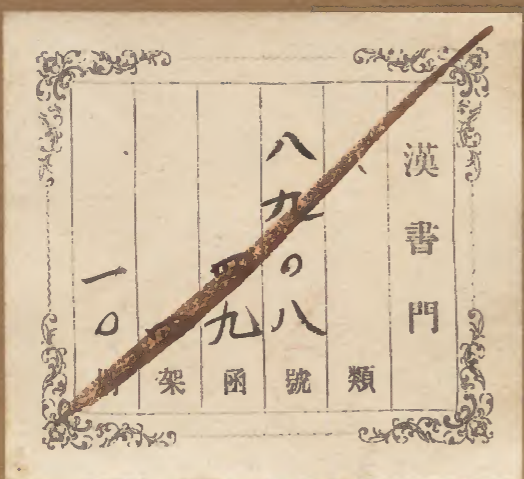 漢書門
類
八九〇八號
四九函
架
一〇冊